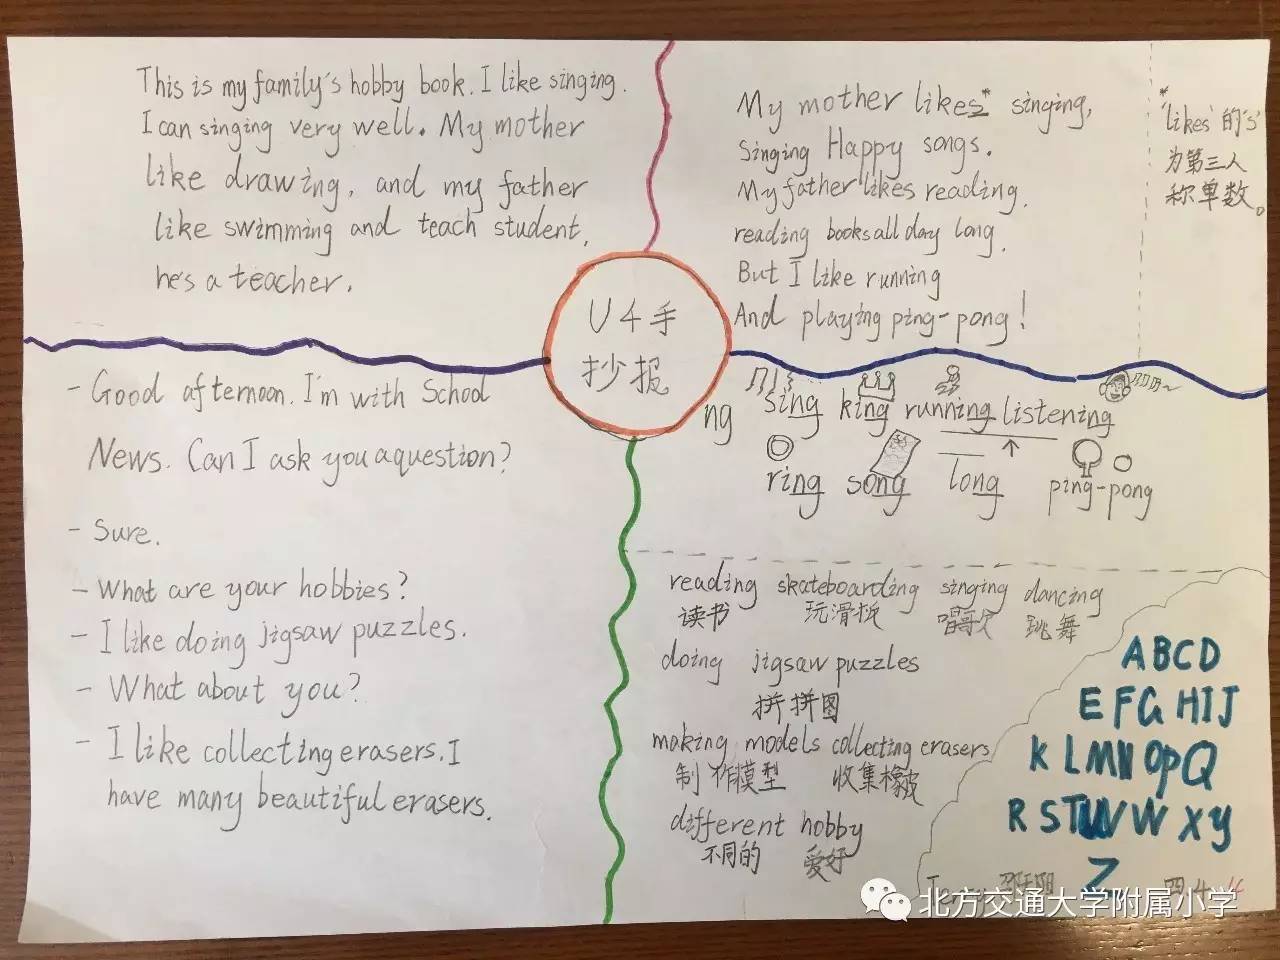 This is my family's hobby book. I like singing.
I can singing very well. My mother
like drawing, and my father
like swimming and teach student,
he's a teacher.
My mother likes* singing,
Singing Happy songs.
My father likes reading.
reading books all day long.
But I like running
And playing ping-pong!
*
'likes'的's'
为第三人
称单数。
U4手
抄报
- Good afternoon. I'm with School
News. Can I ask you a question?
- Sure.
- What are your hobbies?
- I like doing jigsaw puzzles.
- What about you?
- I like collecting erasers. I
have many beautiful erasers.
ng sing king running listening
ring song long ping-pong
reading skateboarding singing dancing
读书 玩滑板 唱歌 跳舞
doing jigsaw puzzles
拼拼图
making models collecting erasers
制作模型 收集橡皮
different hobby
不同的 爱好
ABCD
EFGHIJ
KLMNOPQ
RSTUVWXY
Z
四.4
北方交通大学附属小学